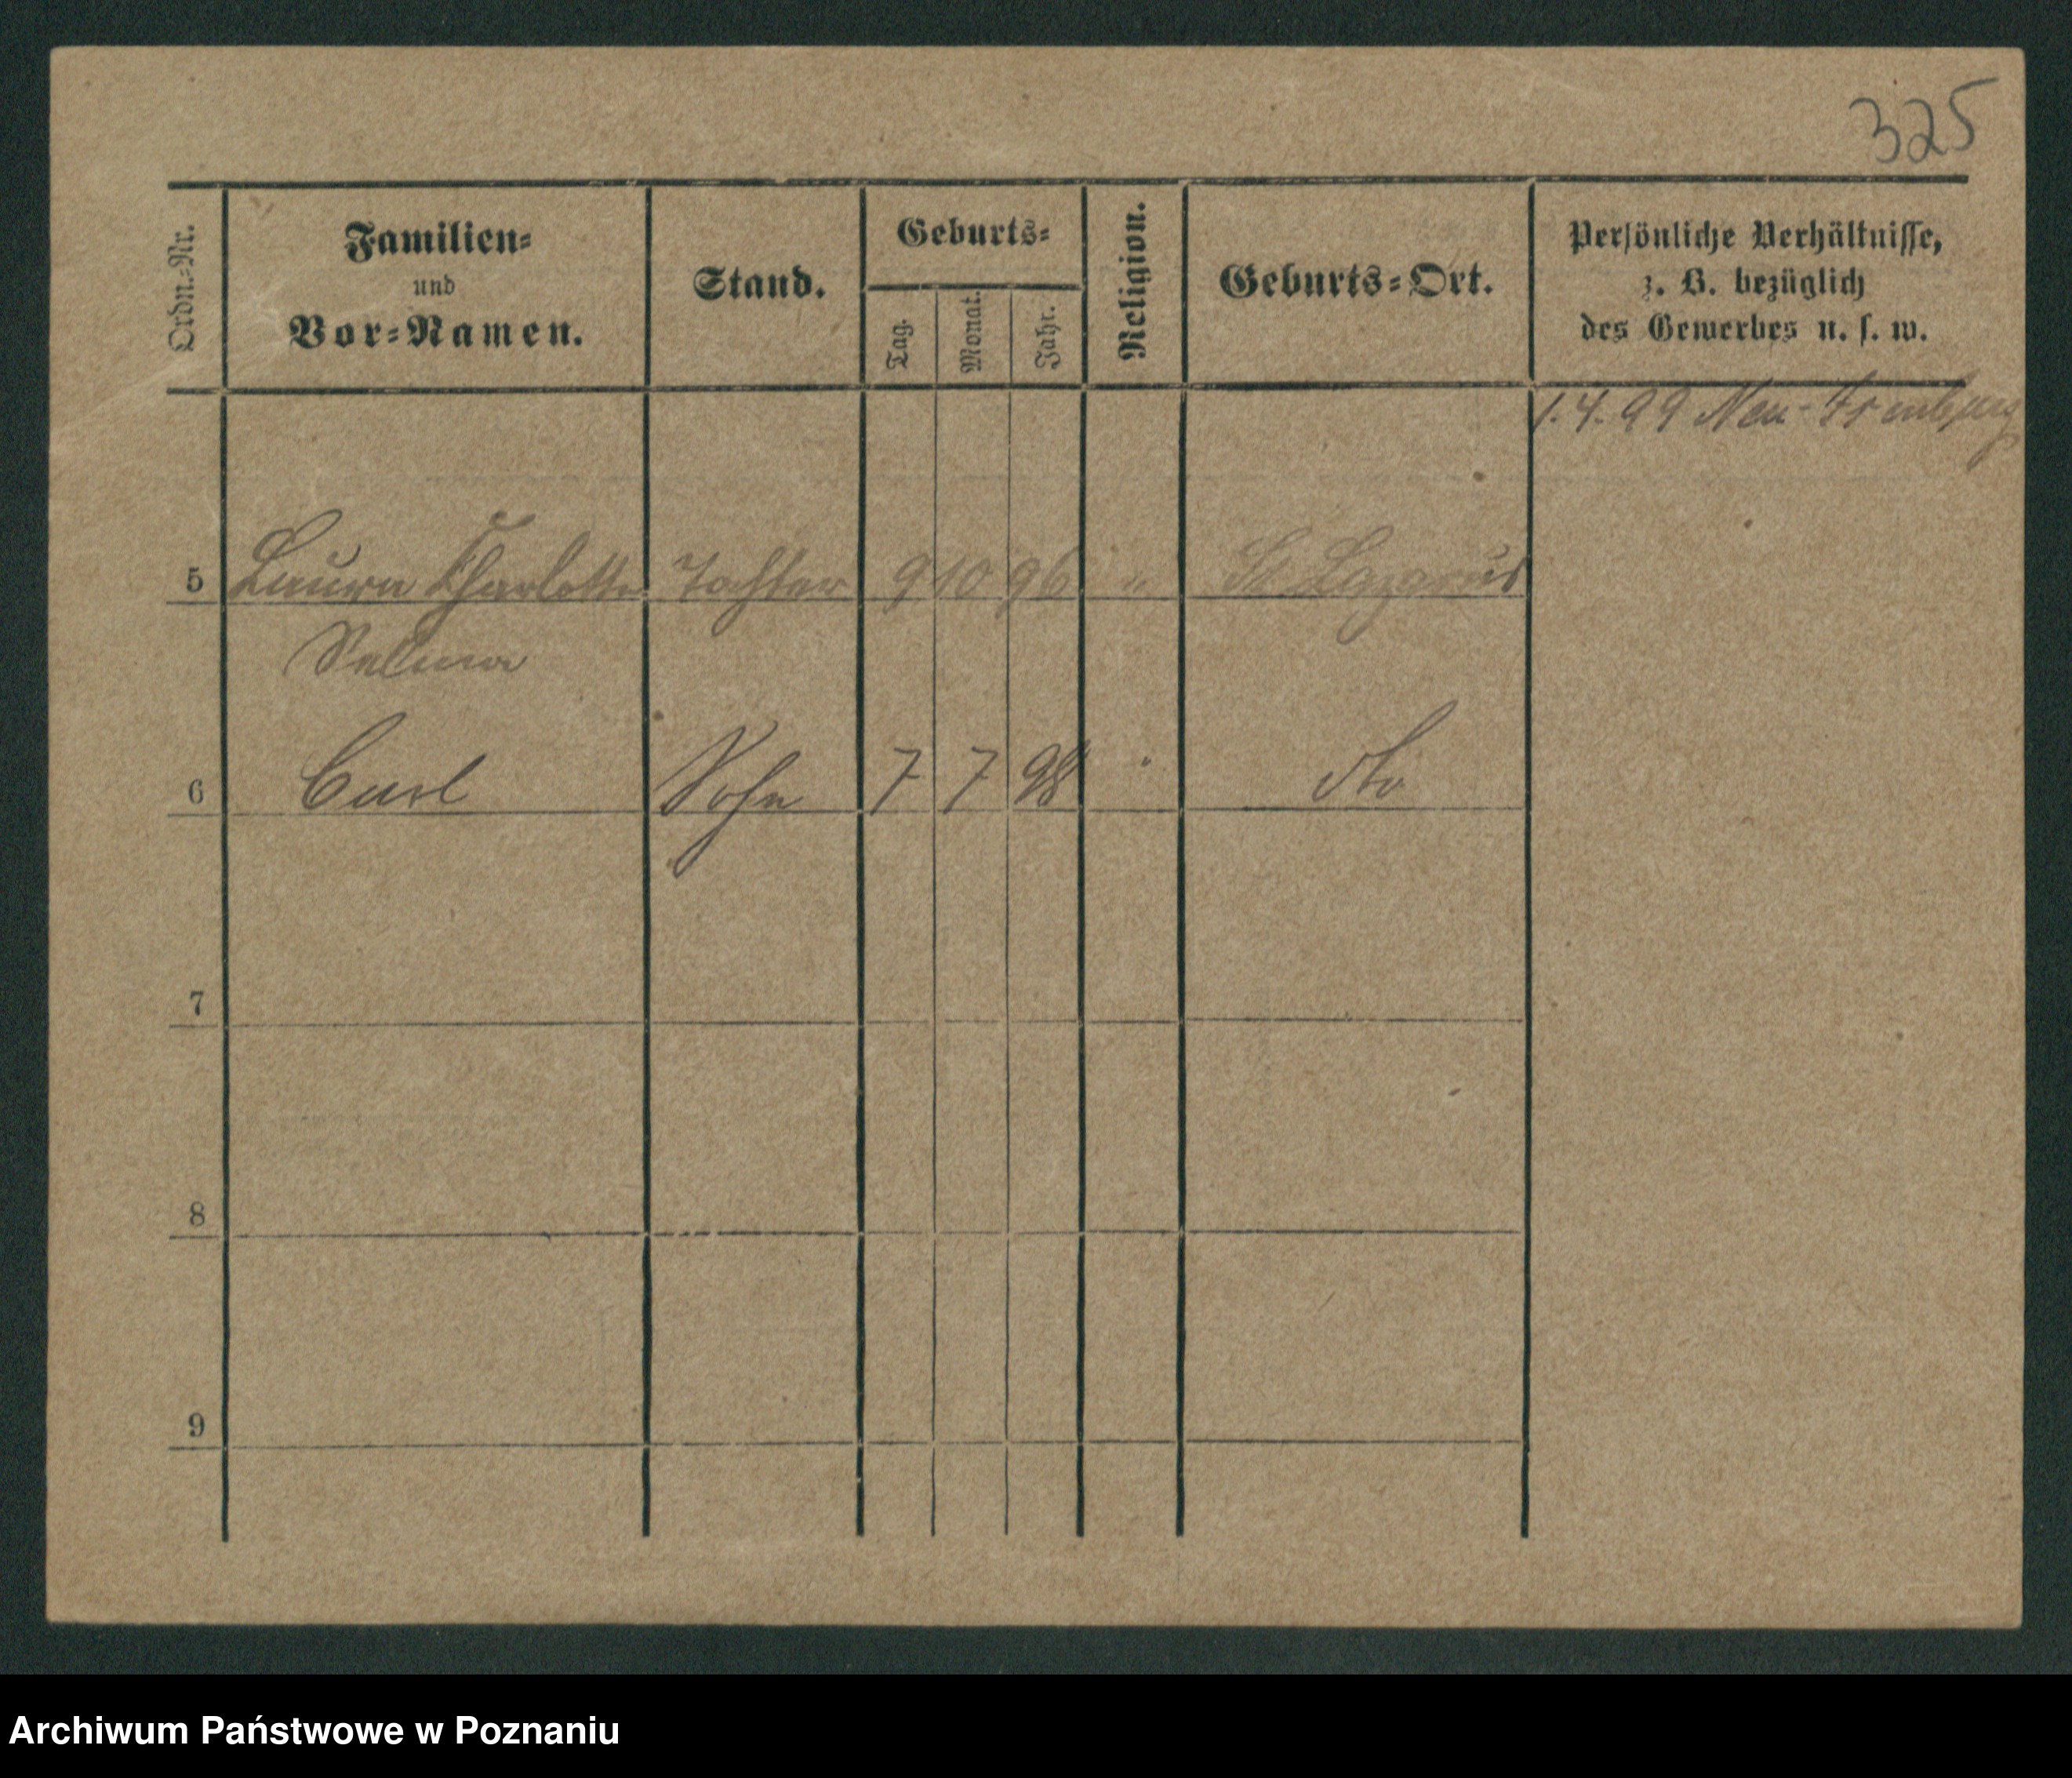 325
Ordn.=Nr.
Familien=
und
Vor=Namen.
Stand.
Geburts=
Tag.
Monat.
Jahr.
Religion.
Geburts=Ort.
Persönliche Verhältnisse,
z. B. bezüglich
des Gewerbes u. s. w.
1. 4. 99 Neu-
5 Laura Charlotte Tochter 9 10 96 " St Lazarus
Selma
6 Carl Sohn 7 7 98 " dto
7
8
9
Archiwum Państwowe w Poznaniu